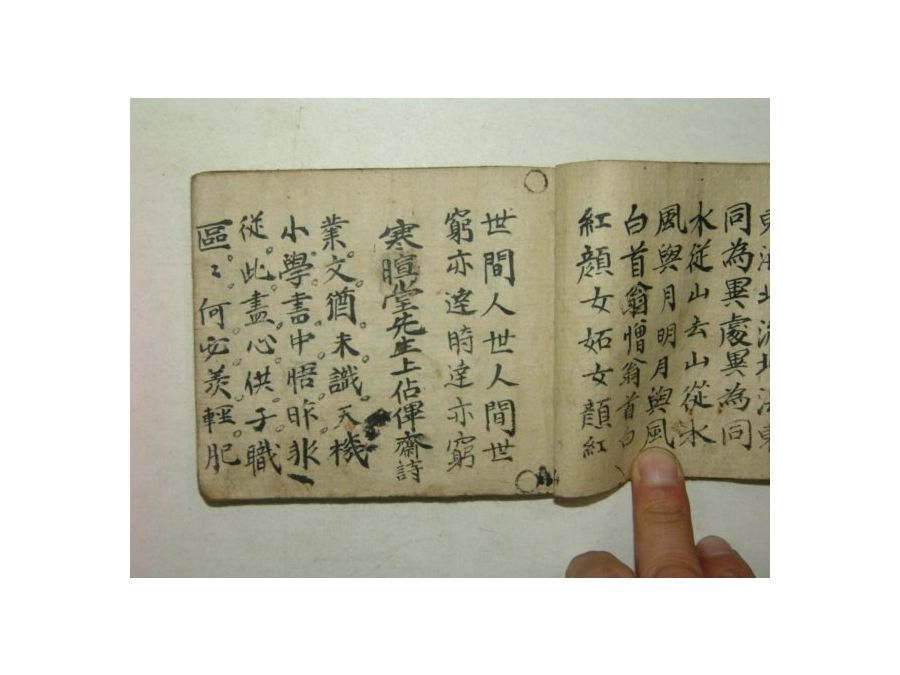 同為異處異為同
水従山去山從水
風與月明月與風
白首翁憎翁首白
紅顔女妬女顔紅
世間人世人間世
窮亦達時達亦窮
寒暄堂先生上佔俾齋詩
業文猶未識天機
小學書中悟昨非
從此盡心供子職
區〻何必羨輕肥